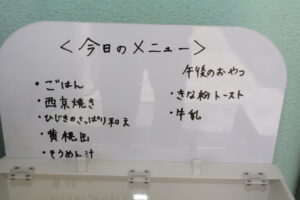 ＜今日のメニュー＞
・ごはん
・西京焼き
・ひじきのさっぱり和え
・黄桃缶
・そうめん汁
午後のおやつ
・きな粉トースト
・牛乳